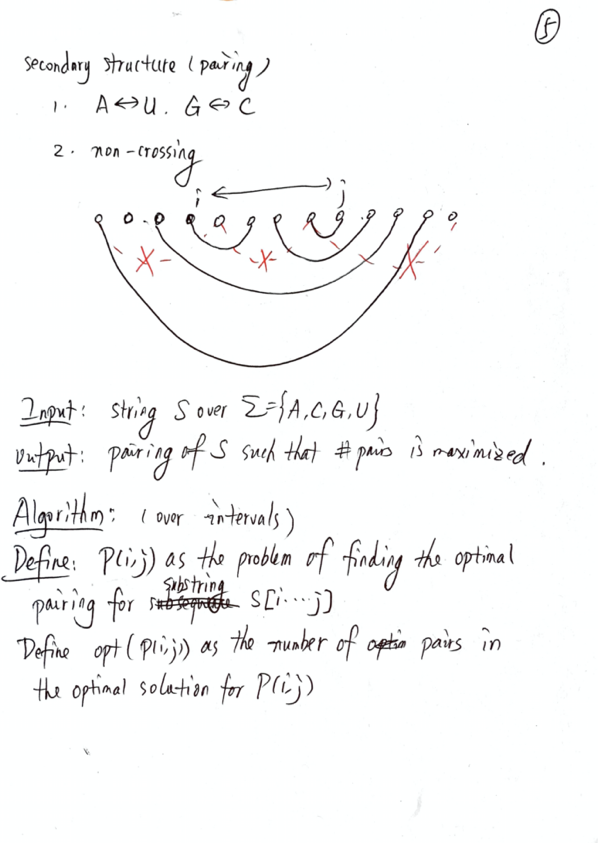 5
secondary structure (pairing)
1. A↔U. G↔C
2. non-crossing
i j
Input: string S over Σ={A,C,G,U}
Output: pairing of S such that # pairs is maximized.
Algorithm: (over intervals)
Define: P(i,j) as the problem of finding the optimal
substring
pairing for subsequence S[i···j]
Define opt(P(i,j)) as the number of optim pairs in
the optimal solution for P(i,j)